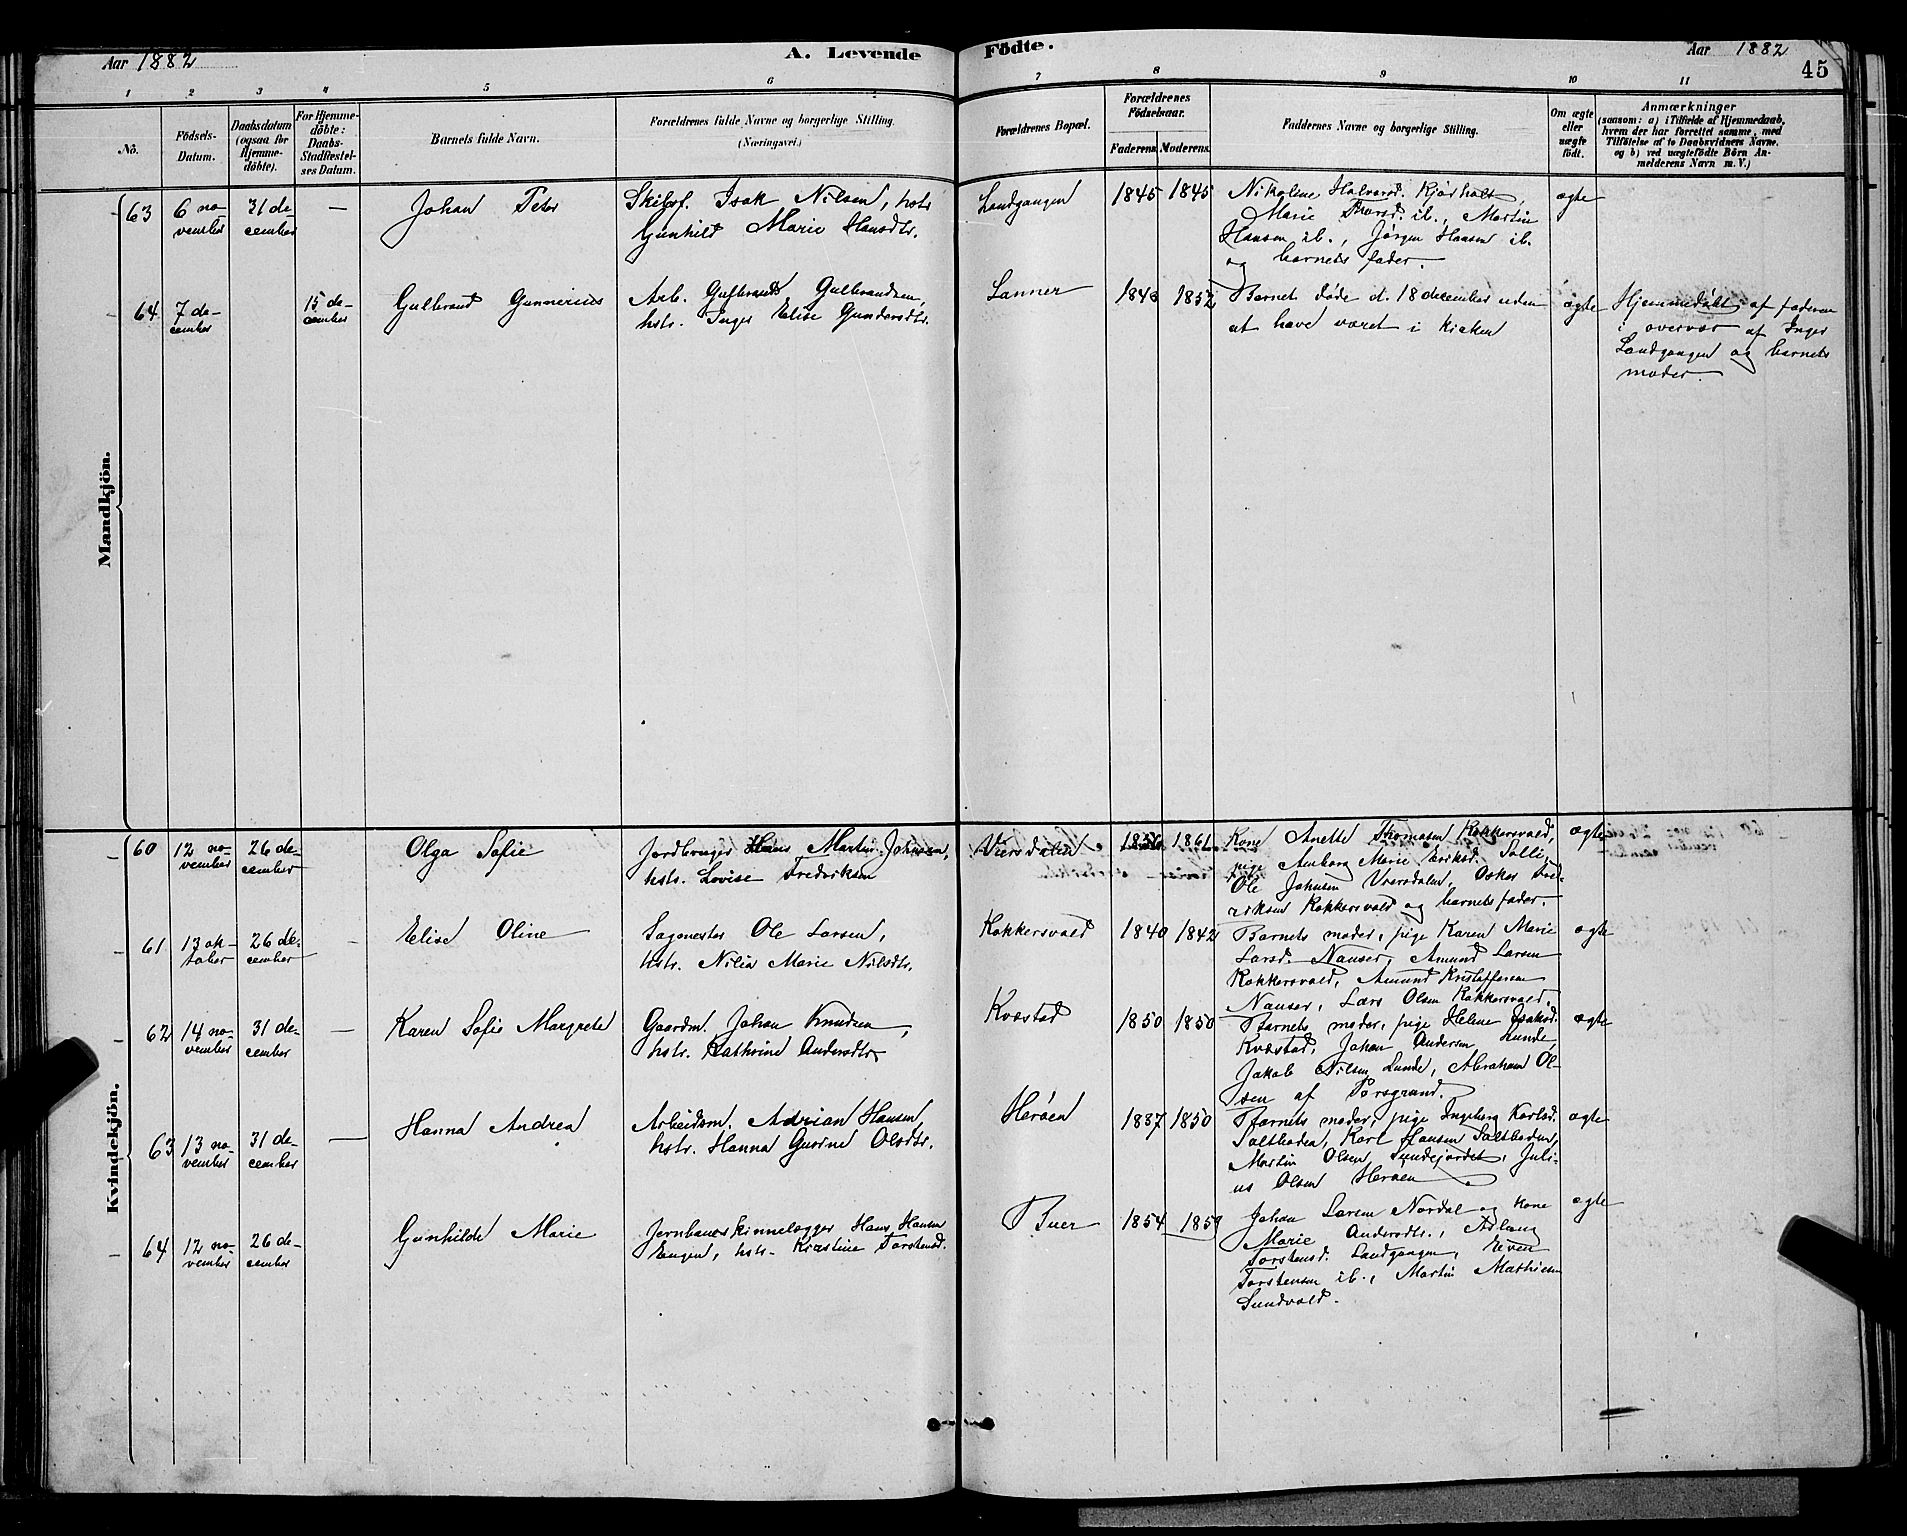 Aar 1882 A. Levende Födte. Aar 1882
45
1 2 3 4 5 6 7 8 9 10 11
No.
Födsels-
Datum.
Daabsdatum
(ogsaa for
Hjemme-
döbte).
For Hjemme-
döbte:
Daabs-
Stadfæstel-
ses Datum.
Barnets fulde Navn.
Forældrenes fulde Navne og borgerlige Stilling.
(Næringsvei.)
Forældrenes Bopæl.
Forældrenes
Födselsaar.
Faderens. Moderens.
Faddernes Navne og borgerlige Stilling.
Om ægte
eller
uægte
födt.
Anmærkninger
(saasom: a) i Tilfælde af Hjemmedaab,
hvem der har forrettet samme, med
Tilföielse af to Daabsvidners Navne.
og b) ved uægtefödte Börn An-
melderens Navn m. V.)
Mandkjön.
63
6 no-
vember
31 de-
cember
—
Johan Peter
Skibsf. Isak Nilsen, hstr.
Gunhild Marie Hansdtr.
Landgangen
1845
1845
Nikoline Halvorsd. Kjørholt,
Marie Thorsd. ib., Martin
Hansen ib., Jørgen Hansen ib.
og barnets fader.
ægte
64
7 de-
cember
15 de-
cember
Gulbrand Gunnerius
Arb. Gulbrand Gulbrandsen,
hstr. Inger Elise Gundersdtr.
Lanner
1843
1852
Barnet døde d. 18 december uden
at have været i kirken
ægte
Hjemmedøbt af faderen
i overvær af Inger
Landgangen og barnets
moder.
Kvindekjön.
60
12 no-
vember
26 de-
cember
Olga Sofie
Jordbruger Hans Martin Johnsen,
hstr. Lovise Fredriksen
Viersdalen
1856
1861
Kone Anette Thomasen Kokkersvold,
pige Anborg Marie Eriksd. Solli,
Ole Johnsen Viersdalen, Oskar Fred-
riksen Kokkersvold og barnets fader.
ægte
61
13 ok-
tober
26 de-
cember
—
Elise Oline
Sagmester Ole Larsen,
hstr. Nilia Marie Nilsdtr.
Kokkersvold
1840
1842
Barnets moder, pige Karen Marie
Larsd. Nauser, Amund Larsen
Kokkersvold, Amund Kristoffersen
Nauser, Lars Olsen Kokkersvold.
ægte
62
14 no-
vember
31 de-
cember
—
Karen Sofie Margrete
Gaardm. Johan Knudsen,
hstr. Kathrine Andersdtr.
Kvæstad
1850
1850
Barnets moder, pige Helene Isaksd.
Kvæstad, Johan Andersen Lunde,
Jakob Nilsen Lunde, Abraham Ol-
sen af Porsgrund.
ægte
63
13 no-
vember
31 de-
cember
—
Hanna Andrea
Arbeidsm. Adrian Hansen,
hstr. Hanna Gurine Olsdtr.
Herøen
1837
1850
Barnets moder, pige Ingeborg Karlsd.
Saltboden, Karl Hansen Saltboden,
Martin Olsen Sundejordet, Juli-
us Olsen Herøen
ægte
64
12 no-
vember
26 de-
cember
Gunhilde Marie
Jernbaneskinnelægger Hans Hansen
Engen, hstr. Kirstine Torstensd.
Buer
1854
1859
Johan Larsen Nordal og kone
Marie Andersdtr., Aslaug
Torstensd. Landgangen, Even
Torstensen ib., Martin Mathisen
Sundvold.
ægte